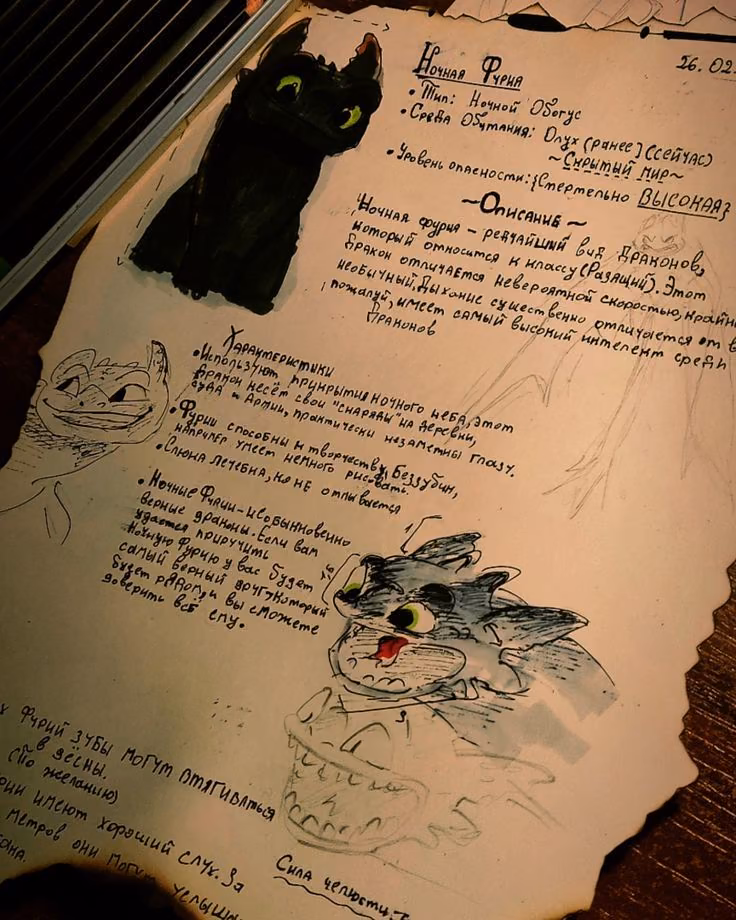 26.02
Ночная Фурия
• Тип: Ночной Обогус
• Среда Обитания: Олух (ранее] (сейчас)
~Скрытый мир~
• Уровень опасности: {Смертельно ВЫСОКАЯ}
~Описание~
Ночная фурия - редчайший вид Драконов,
который относится к классу (Разящий). Этот
Дракон отличается невероятной скоростью, крайне
необычный. Дыхание существенно отличается от в
пожалуй, имеет самый высокий интелект среди
Драконов
Характеристики
• Используют прикрытия ночного неба, этот
Дракон несёт свои "снаряды" на деревни,
суда и Армии, практически незаметны глазу.
• Фурии способны к творчеству, Беззубик,
например умеет немного рисовать.
• Слюна лечебна, но не отмывается
• Ночные Фурии - необыкновенно
верные драконы. Если вам
удастся приручить
Ночную Фурию у вас будет
самый верный друг, который
будет рядом, и вы сможете
доверить всё ему.
х Фурий зубы могут втягиваться
в дёсны.
(По желанию)
рии имеют хороший слух. За
метров они могут услыша
Сила челюсти: